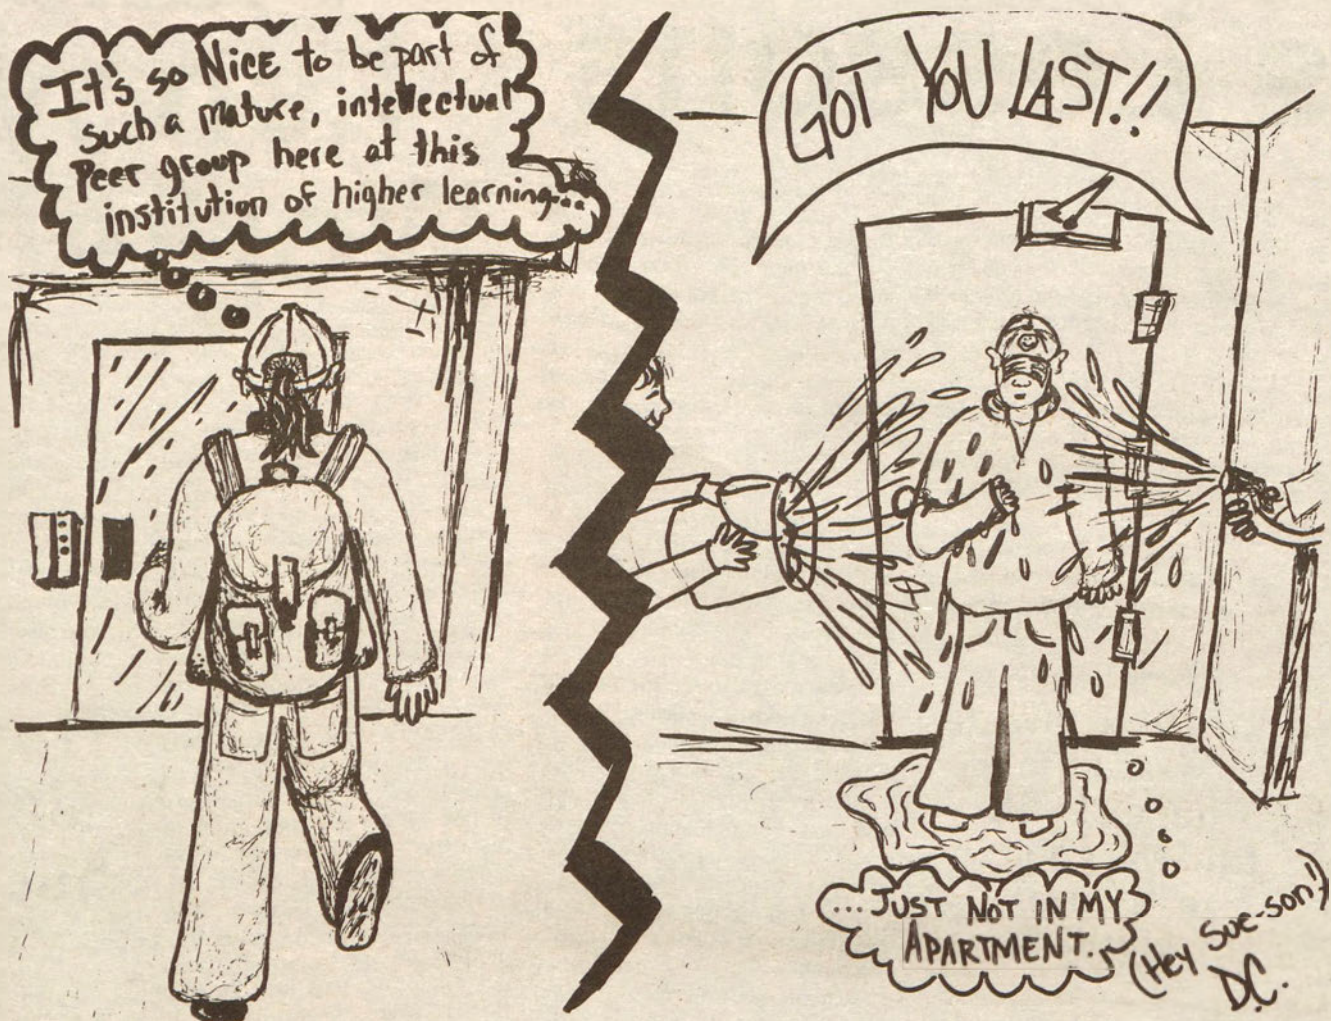 It's so NiCE to be part of
such a mature, intellectual
Peer group here at this
institution of higher learning...
GOT YOU LAST!!
...JUST NOT IN MY
APARTMENT.
(Hey Sue-son!)
D.C.